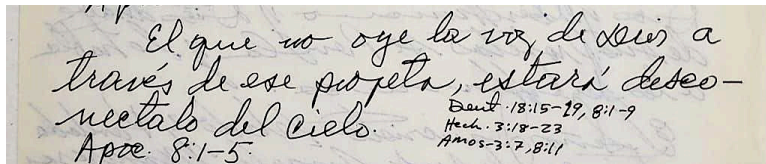 El que no oye la voz de Dios a
través de ese profeta, estará desco-
nectalo del cielo.
Deut. 18:15-19, 8:1-9
Hech. 3:18-23
Amos-3:7, 8:11
Apoc. 8:1-5.